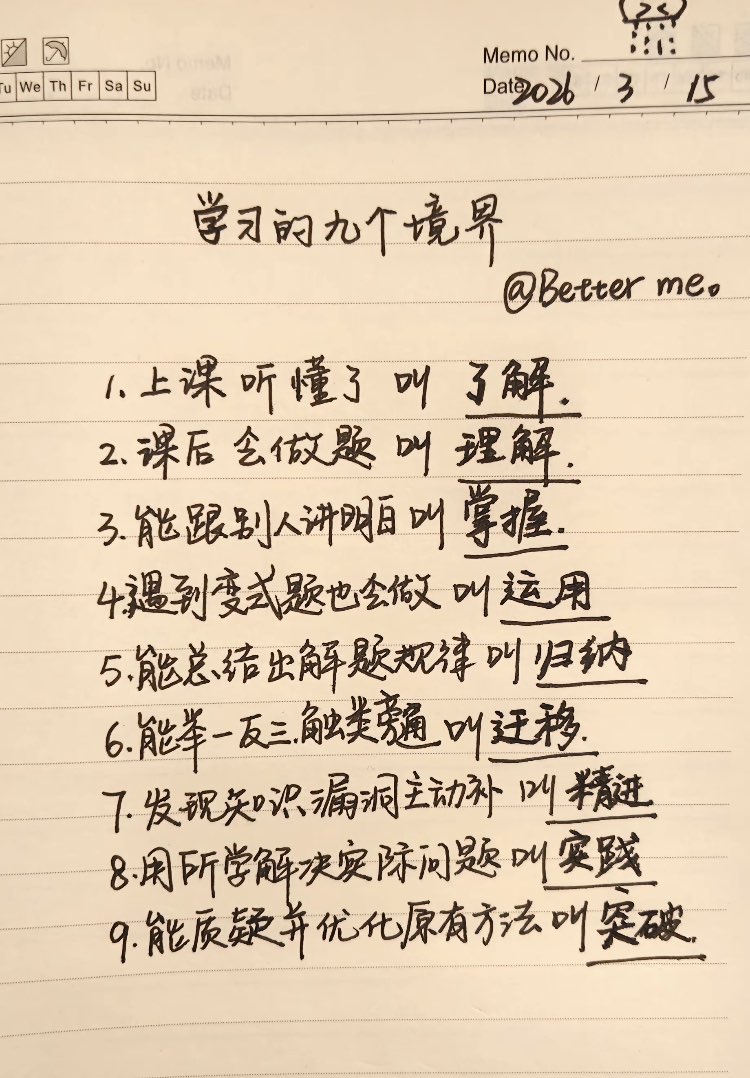 Memo No.
Tu We Th Fr Sa Su
Date 2026 / 3 / 15
学习的九个境界
@Better me。
1. 上课听懂了叫 了解.
2. 课后会做题叫 理解.
3. 能跟别人讲明白叫 掌握.
4. 遇到变式题也会做叫 运用
5. 能总结出解题规律叫 归纳
6. 能举一反三.触类旁通叫 迁移.
7. 发现知识漏洞主动补叫 精进
8. 用所学解决实际问题叫 实践
9. 能质疑并优化原有方法叫 突破.